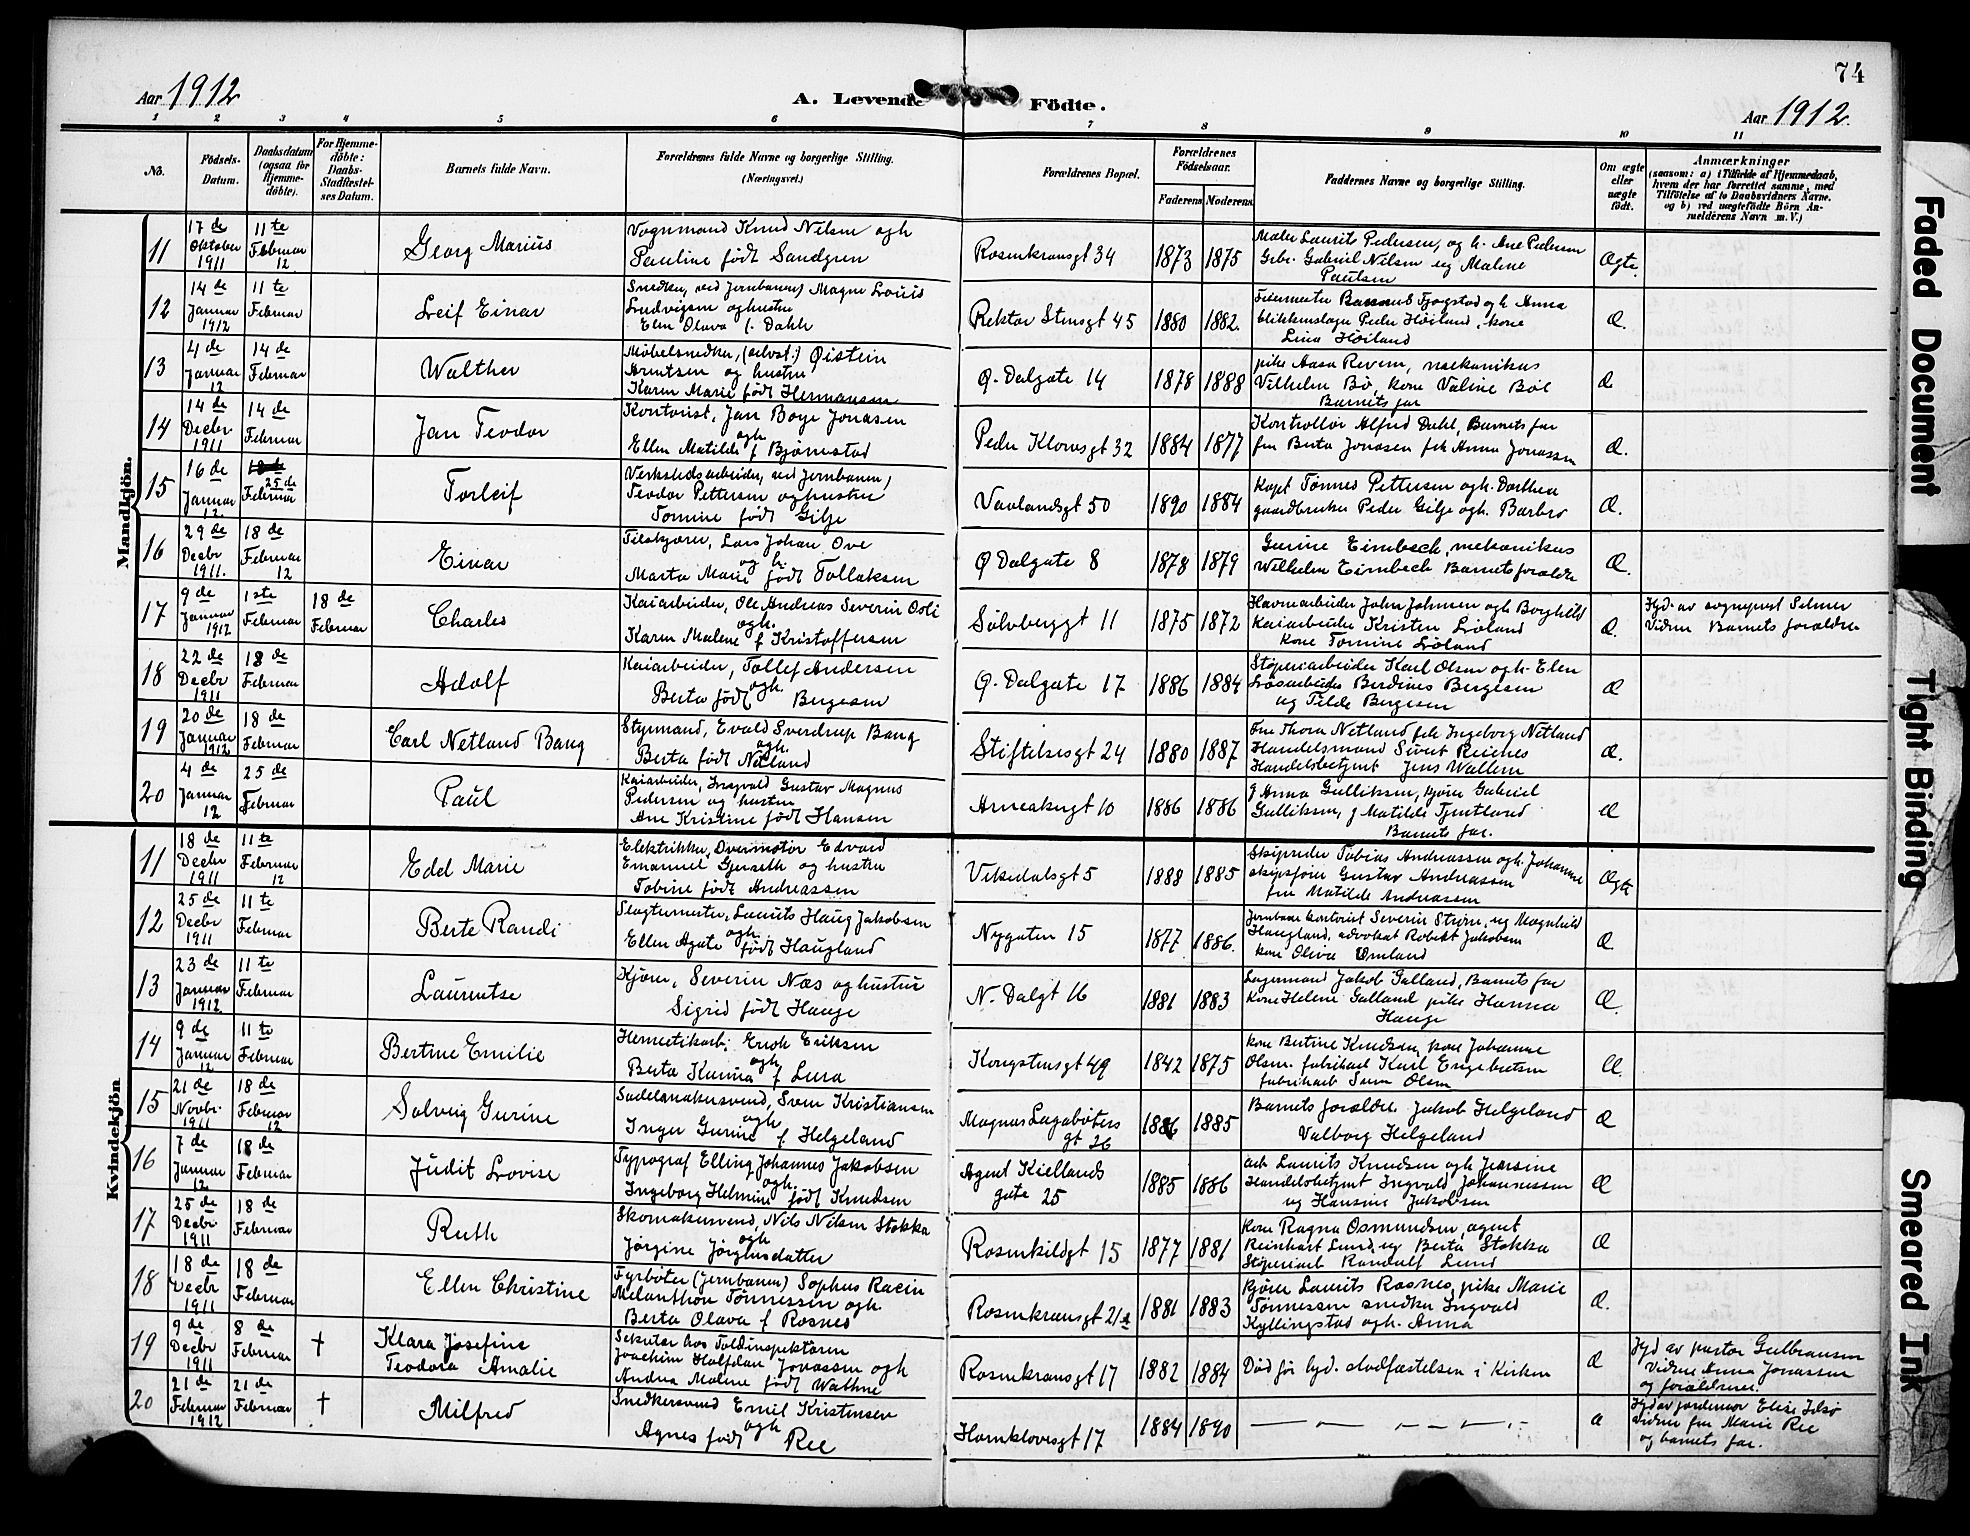 74
Aar 1912
A. Levende Födte.
Aar 1912.
1 2 3 4 5 6 7 8 9 10 11
No.
Födsels-
Datum.
Daabsdatum
(ogsaa for
Hjemme-
döbte).
For Hjemme-
döbte:
Daabs-
Stadfæstel-
ses Datum.
Barnets fulde Navn.
Forældrenes fulde Navne og borgerlige Stilling.
(Næringsvei.)
Forældrenes Bopæl.
Forældrenes
Födselsaar.
Faderens Moderens
Faddernes Navne og borgerlige Stilling.
Om ægte
eller
uægte
födt.
Anmærkninger
(saasom: a) i Tilfælde af Hjemmedaab,
hvem der har forrettet samme, med
Tilföielse af to Daabsvidners Navne.
og b) ved uægtefödte Börn An-
melderens Navn m. V.)
Mandkjön.
11
17 de
Oktober
1911
11 te
Februar
12
Georg Marius
Vognmand Knud Nilsen og h
Pauline født Sandgren
Rosenkransgt 34
1873 1875
Maler Laurits Pedersen, og h. Ane Pedersen
Gabriel Nilsen og Malene
Paulsen
Ægte.
12
14 de
Januar
1912
11 te
Februar
Leif Einar
Snedker, ved Jernbanen) Magne Louis
Ludvigsen og hustru
Elen Olava f. Dahle
Rektor Stensgt 45
1880 1882.
Feiermester Tjogstad og h. Anna
blikkenslager Peder Höiland, kone
Lina Höiland
Æ.
13
4 de
Januar
12
14 de
Februar
Walther
Møbelsnedker, (selvst.) Øistein
Arntsen og hustru
Karen Marie født Hermansen
Ø. Dalgate 14
1878 1888
pike Aasa Revem, mekanikus
Vilhelm Bö, kone Valine Böe
Barnets far
Æ
14
14 de
Decbr
1911
14 de
Februar
Jan Teodor
Kontorist, Jan Boye Jonasen
og h
Ellen Matilde f Bjørnestad
Peder Klowsgt 32
1884 1877
Kontrollör Alfred Dahl, Barnets far
fru Berta Jonasen frk Anna Jonassen
Æ.
15
16 de
Januar
12
25 de
Februar
Torleif
Verkstedsarbeider, ved Jernbanen)
Teodor Pettersen og hustru
Tomine født Gilje
Vaalandsgt 50
1890 1884
Kapt Tönnes Pettersen og h. Dorthea
gaardbruker Peder Gilje og h. Barbro
Æ.
16
29 de
Decbr
1911.
18 de
Februar
12
Einar
Lars Johan Ove
og h.
Marta Marie født Tollaksen
Ø Dalgate 8
1878 1879
Gurine Eimbech, mekanikus
Wilhelm Eimbech Barnets forældre
Æ.
17
9 de
Januar
1912
1ste
Februar
18 de
Februar
Charles
Kaiarbeider, Ole Andreas Severin Osli
og h.
Karen Malene f Kristoffersen
Sølvberggt 11
1875 1872
Havnearbeider John Johnsen og h Borghild
Kaiarbeider Kristen Löland
kone Tomine Löland
Æ.
Hjd. av sogneprest Selmer
Vidner Barnets forældre
18
22 de
Decbr
1911
18 de
Februar
Adolf
Kaiarbeider, Tollef Andersen
og h.
Berta født Bergesen
Ø. Dalgate 17
1886 1884
Støperiarbeider Karl Olsen og h. Elen
Løsarbeider Berdines Bergesen
og Tilde Bergesen
Æ
19
20 de
Januar
1912
18 de
Februar
Carl Netland Bang
Styrmand, Evald Sverdrup Bang
og h.
Berta født Netland
Stiftelsesgt 24
1880 1887
Fru Thora Netland frk Ingeborg Netland
Handelsmand Sivert Reienes
Handelsbetjent Jens Wallem
Æ.
20
4 de
Januar
12
25 de
Februar
Paul
Kaiarbeider, Ingvald Gustav Magnus
Pedersen og hustru
Ane Kristine født Hansen
Arneakergt 10
1886 1886
g Anna Gulliksen, kjører Gabriel
Gulliksen, g Matilde Tjentland
Barnets far.
Æ
Kvindekjön
11
18 de
Decbr
1911
11 te
Februar
12
Edel Marie
Elektriker, Edvard
Emanuel Gjerseth og hustru
Tobine født Andreassen
Vikedalsgt 5
1888 1885
Skipsreder Tobias Andreassen og h. Johanne
skipsfører Gustav Andreassen
fru Matilde Andreassen
Ægte
12
25 de
Decbr
1911
11 te
Februar
Berte Randi
Slagtermester, Laurits Haug Jakobsen
og h.
Ellen Agate født Haugland
Nygaten 15
1877 1886.
Jernbane kontorist Severin Strøm, og Magnhild
Haugland, advokat Robert Jakobsen
kone Olive Omland
Æ
13
23 de
Januar
1912
11 te
Februar
Laurentse
Kjører, Severin Næs og hustru
Sigrid født Hauge
N. Dalgt 16
1881 1883
Lagermand Jakob Galland, Barnets far
Kone Helene Galland pike Hanna
Hauge
Æ.
14
9 de
Januar
12
11 te
Februar
Bertine Emilie
Hermetikarb. Erik Eriksen
og h
Berta Karina f Lura
Kongstensgt 49
1842 1875
kone Bertine Knudsen, kone Johanne
Olsen. fabrikarb Karl Engebretsen
fabrikarb Olsen
Æ.
15
21 de
Novbr.
1911
18 de
Februar
12
Solveig Gurine
Sadelmakersvend, Sven Kristiansen
og h
Inger Gurine f Helgeland
Magnus Lagabøters
gt 26
1886 1885
Barnets forældre. Jakob Helgeland
Valborg Helgeland
Æ
16
7 de
Januar
12
18 de
Februar
Judit Lovise
Typograf Elling Johannes Jakobsen
og h.
Ingeborg Helmine født Knudsen
Agent Kiellands
gate 25
1885 1886
arb Laurits Knudsen og h Jensine
Handelsbetjent Ingvald Johannessen
og Hansine Jakobsen
Æ
17
25 de
Decbr
1911
18 de
Februar
Ruth
Skomakersvend, Nils Nilsen Stokka
og h
Jørgine Jørgensdatter
Rosenkildgt 15
1877 1881
kone Ragna Osmundsen, agent
Reinhart Lund, og Berta Stokka
Støperiarb Randulf Lund
Æ
18
18 de
Decbr
1911
18 de
Februar
Ellen Christine
Fyrbøter (Jernbanen) Sophus Racin
Melanthon Tönnessen og h
Berta Olava f Rosnes
Rosenkransgt 21a
1881 1883
kjører Laurits Rosnes, pike Marie
Tönnessen snedker Ingvald
Kyllingstad og h. Anna
Æ.
19
9 de
Decbr
1911
8 de
Februar
†
Klara Josefine
Teodora Amalie
Sekretær hos Toldinspektøren
Joachim Halfdan Jonassen og h
Andrea Malene født Wathne
Rosenkransgt 17
1882 1884
Død før hjd. stadfæstelsen i Kirken
Æ
Hjd av pastor Gulbransen
Vidner Anna Jonassen
og forældrene.
20
21 de
Februar
1912
21 de
Februar
†
Milfred
Snedkersvend Emil Kristensen
og h
Agnes født Ree
Hornklovesgt 17
1884 1890
— — — — —
Æ
Hjd av jordemor Elise
Vidner fru Marie Ree
og barnets far.
Faded Document
Tight Binding
Smeared Ink